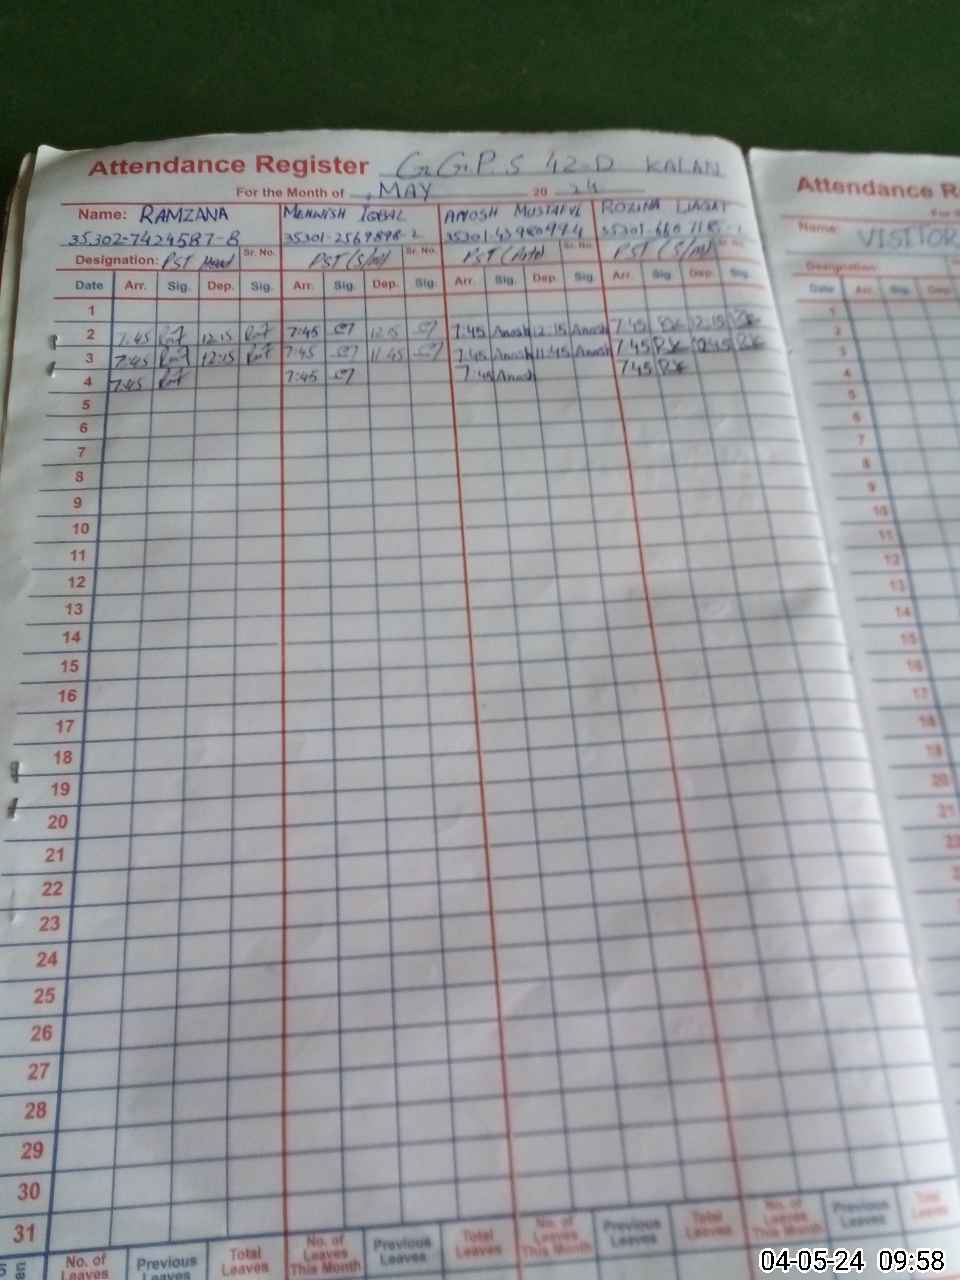 Attendance Register G.G.P.S 42-D KALAN
For the Month of MAY 20 24
Name: RAMZANA MEHWISH IQBAL ANOSH MUSTAFVI ROZINA LIAQAT
35302-7424587-8 35301-2569898-2
Designation: PST Head Sr. No. PST (S/m) Sr. No. PST (Arts) Sr. No. PST (S/m) Sr. No.
Date Arr. Sig. Dep. Sig. Arr. Sig. Dep. Sig. Arr. Sig. Dep. Sig. Arr. Sig. Dep. Sig.
1
2 7:45 12:15 7:45 12:15 7:45 Anosh 12:15 Anosh 7:45 12:15
3 7:45 12:15 7:45 11:45 7:45 Anosh 11:45 Anosh 7:45
4 7:45 7:45 7:45 Anosh 7:45
5
6
7
8
9
10
11
12
13
14
15
16
17
18
19
20
21
22
23
24
25
26
27
28
29
30
31
No. of Leaves Previous Leaves Total Leaves No. of Leaves This Month Previous Leaves Total Leaves No. of Leaves This Month Previous Leaves Total Leaves No. of Leaves This Month Previous Leaves Total Leaves
Attendance R
Name: VISITOR
Designation:
Date Arr. Sig. Dep
1
2
3
4
5
6
7
8
9
10
11
12
13
14
15
16
17
18
19
20
21
04-05-24 09:58